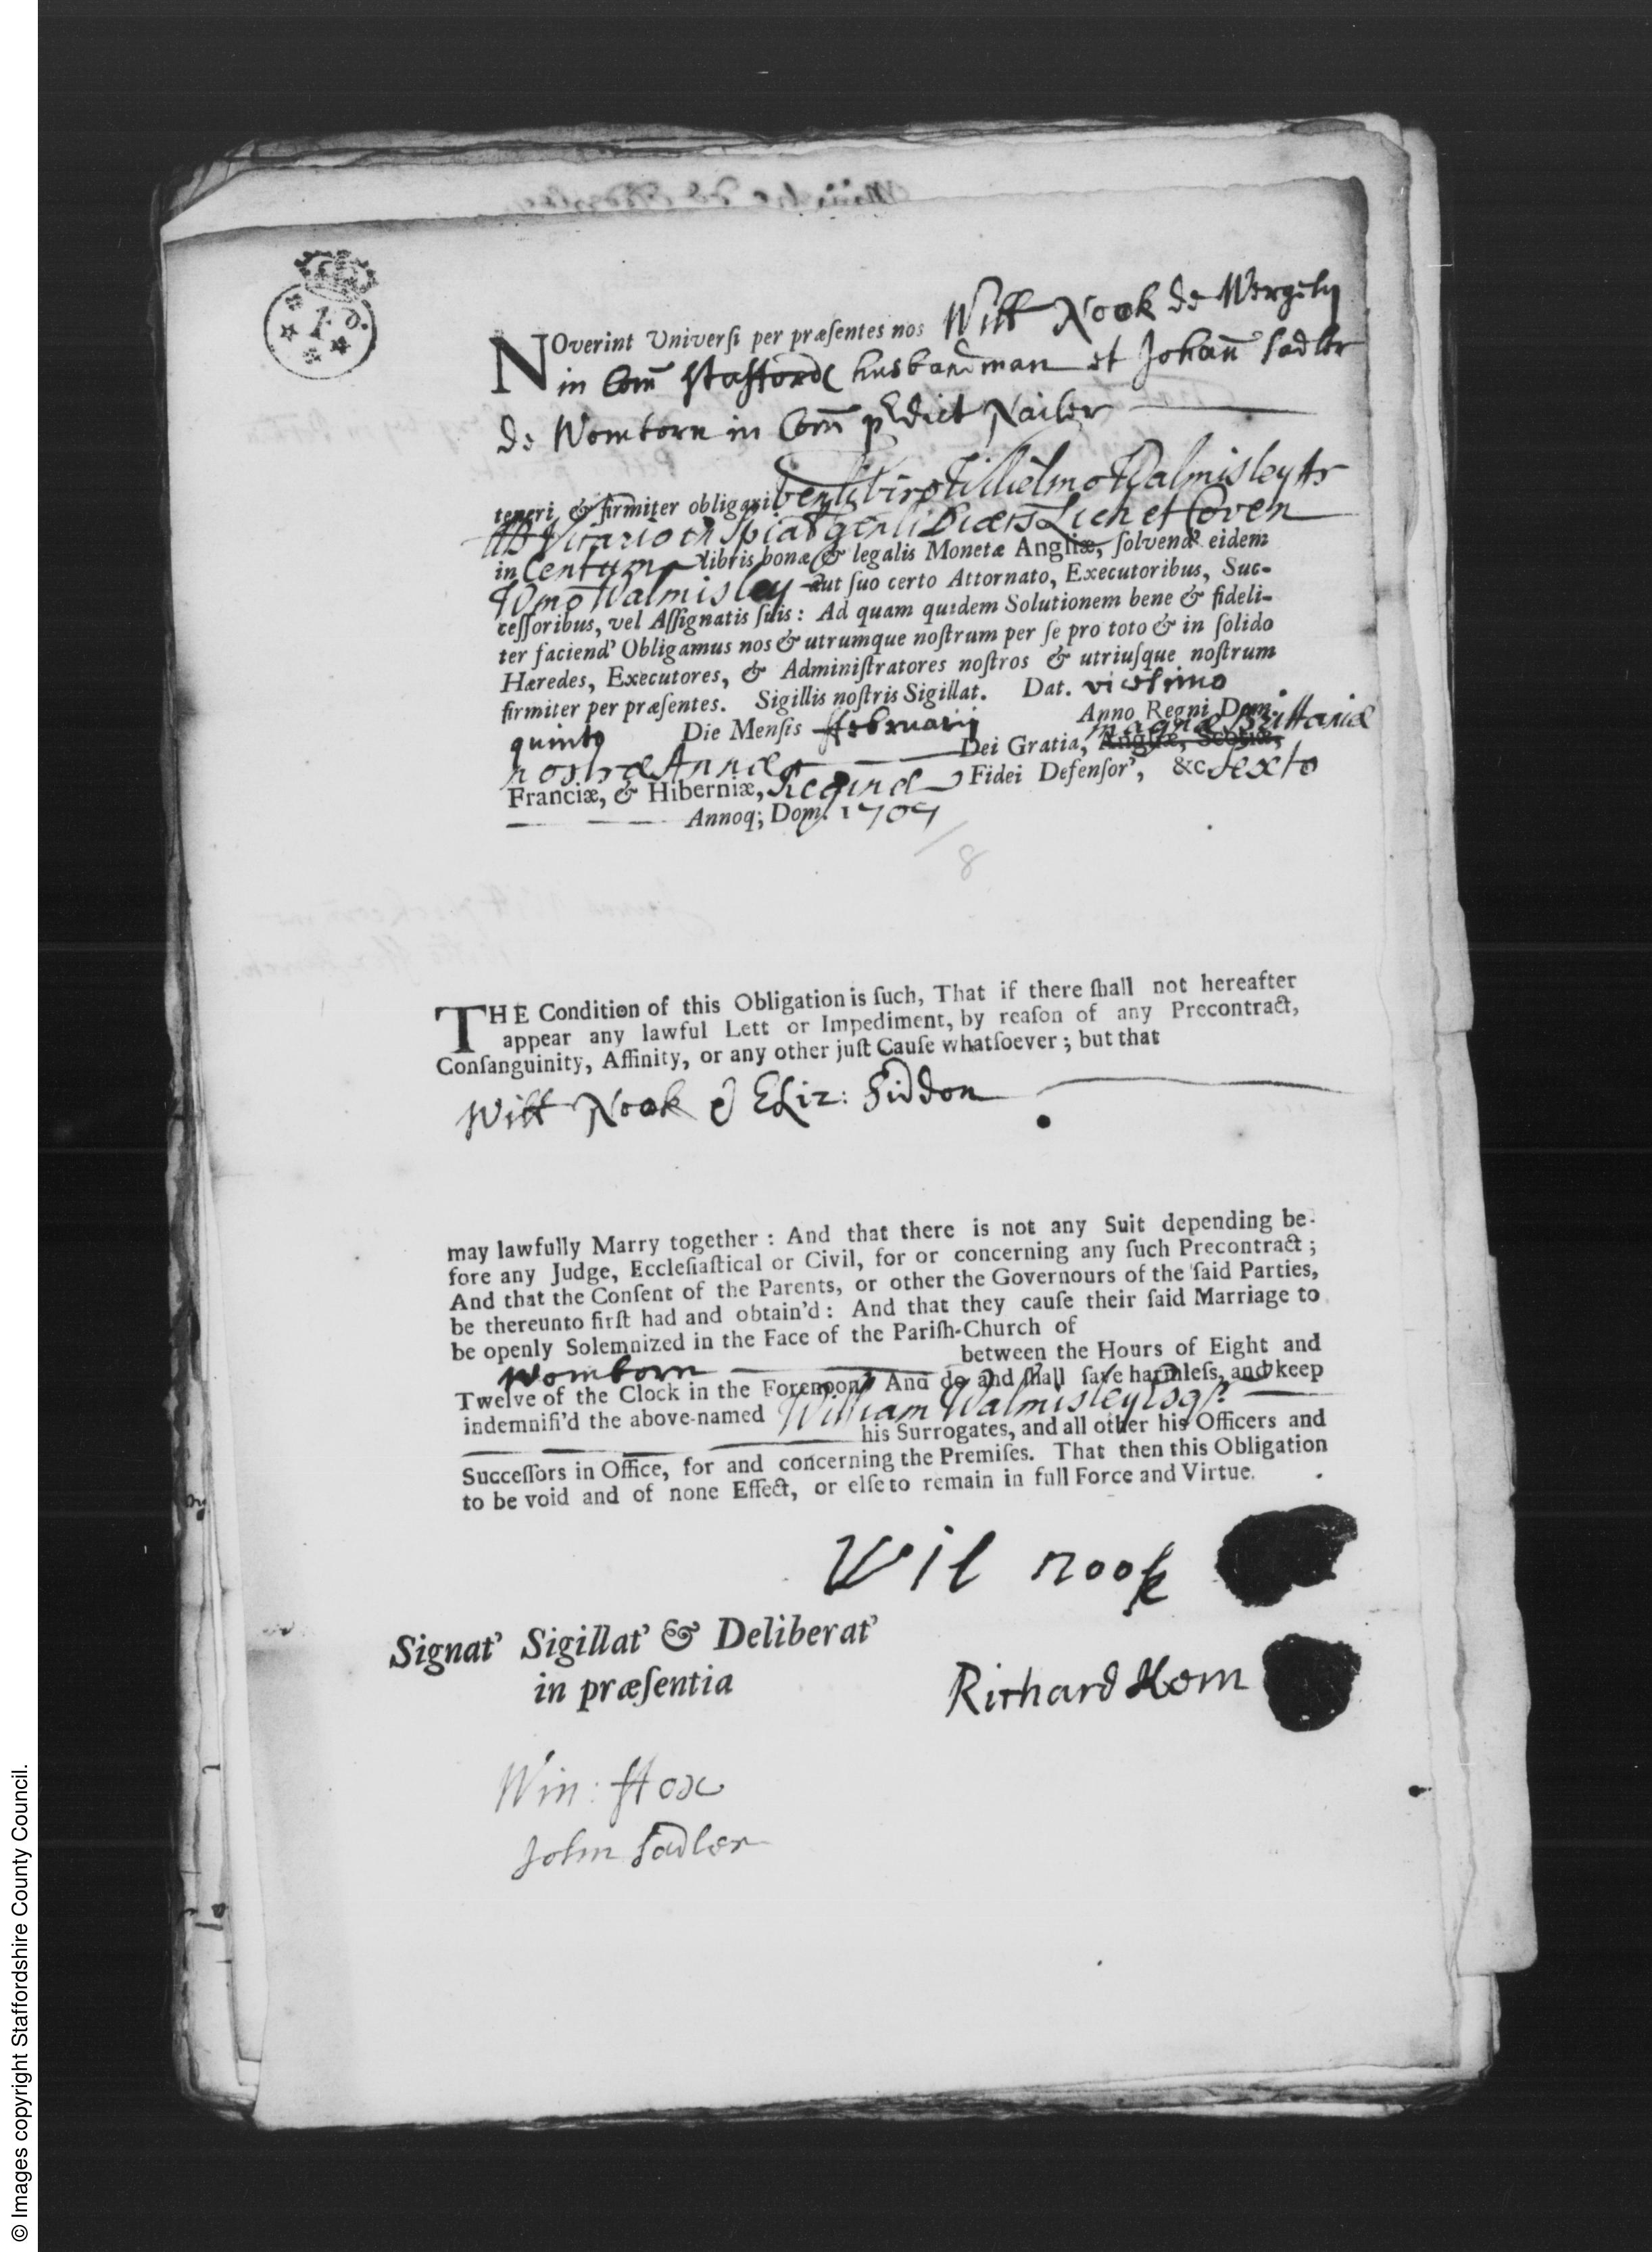 1 d.
NOverint Universi per præsentes nos Will Nook de Wergely
in Com Stafford husbandman et Johan Sadler
de Womborn in Com pdict Nailer
teneri & firmiter obligari Willielmo Walmisley Ar
Vicario Lich et Coven
in Centum libris bonæ & legalis Monetæ Angliæ, solvend' eidem
Wmo Walmisley aut suo certo Attornato, Executoribus, Suc-
cessoribus, vel Assignatis suis: Ad quam quidem Solutionem bene & fideli-
ter faciend' Obligamus nos & utrumque nostrum per se pro toto & in solido
Hæredes, Executores, & Administratores nostros & utriusque nostrum
firmiter per præsentes. Sigillis nostris Sigillat. Dat. vicesimo
quinto Die Mensis ffebruarij Anno Regni Dom.
nostræ Annæ Dei Gratia, Angliæ, Scotiæ, magnæ Brittaniæ
Franciæ, & Hiberniæ, Reginæ Fidei Defensor', &c. Sexto
Annoq; Dom. 1707
/8
THE Condition of this Obligation is such, That if there shall not hereafter
appear any lawful Lett or Impediment, by reason of any Precontract,
Consanguinity, Affinity, or any other just Cause whatsoever; but that
Will Nook & Eliz: Siddon
may lawfully Marry together: And that there is not any Suit depending be-
fore any Judge, Ecclesiastical or Civil, for or concerning any such Precontract;
And that the Consent of the Parents, or other the Governours of the said Parties,
be thereunto first had and obtain'd: And that they cause their said Marriage to
be openly Solemnized in the Face of the Parish-Church of
Womborn between the Hours of Eight and
Twelve of the Clock in the Forenoon; And do and shall save harmless, and keep
indemnifi'd the above-named William Walmisley Esqr.
his Surrogates, and all other his Officers and
Successors in Office, for and concerning the Premises. That then this Obligation
to be void and of none Effect, or else to remain in full Force and Virtue.
Wil nook
Signat' Sigillat' & Deliberat'
in præsentia
Richard Kem
Win: ffox
John Sadler
© Images copyright Staffordshire County Council.